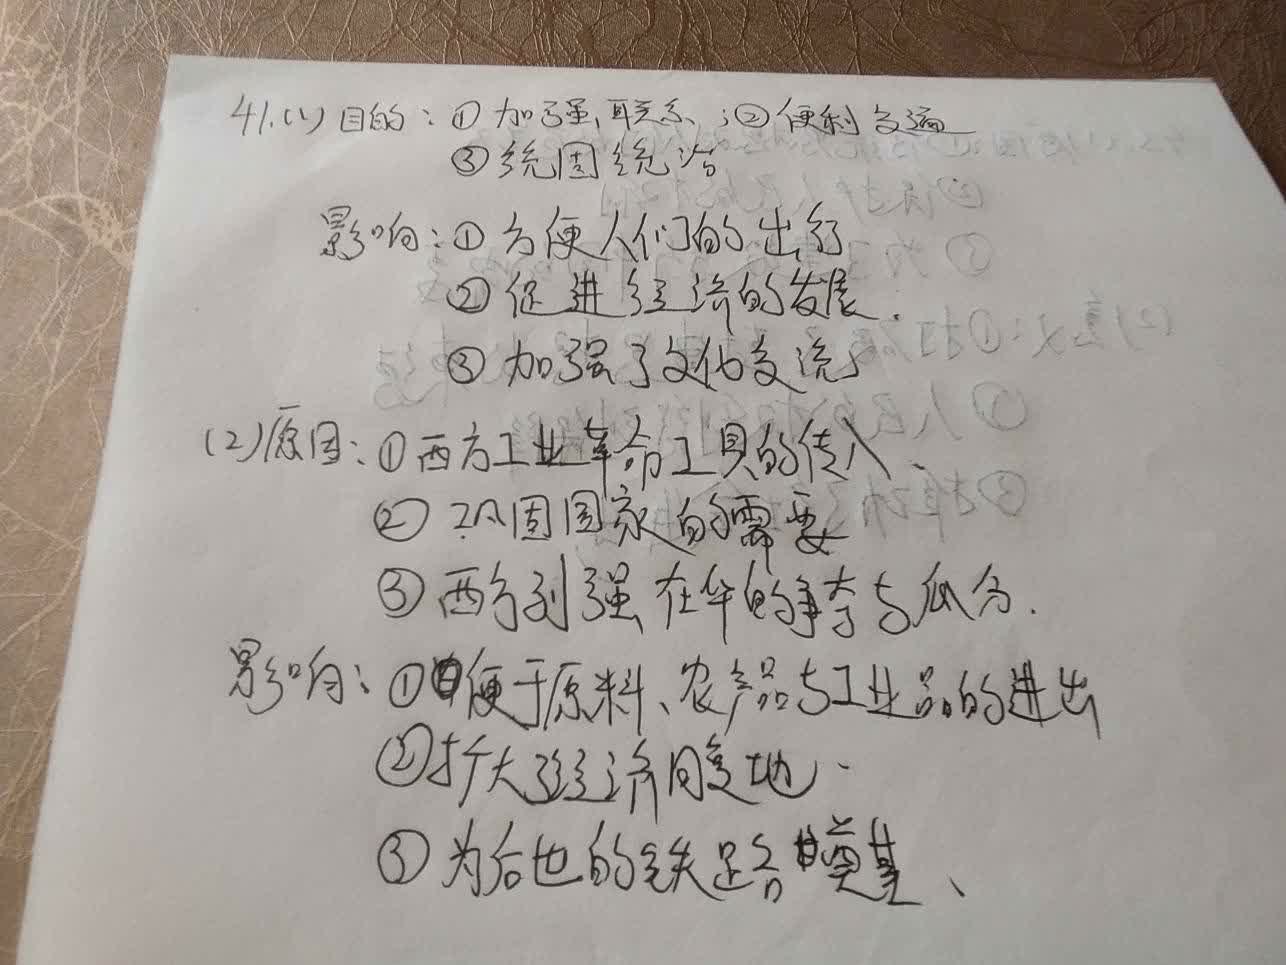 41.(1)目的：①加强联系；②便利交通
③统固统治
影响：①方便人们的出行
②促进经济的发展.
③加强了文化交流
(2)原因：①西方工业革命工具的传入、
②巩固国家的需要
③西方列强在华的争夺与瓜分.
影响：①便于原料、农产品与工业品的进出
②扩大经济腹地.
③为后世的铁路奠基、